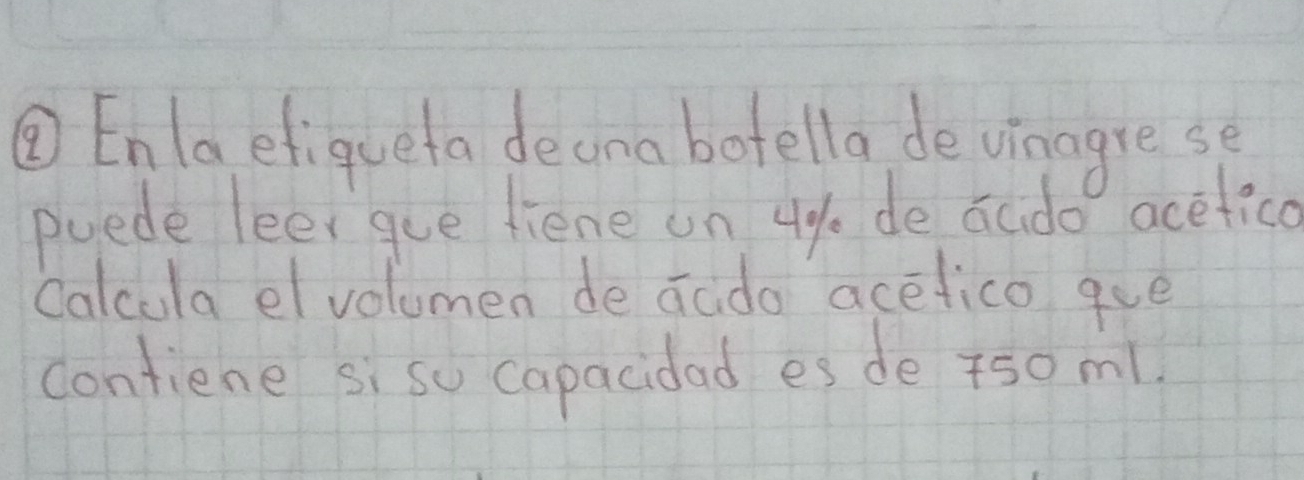 ② En la etiqueta de una botella de vinagre se
puede leer que tiene un 4% de ácido acético
Calcula el volumen de ácido acético que
contiene si su capacidad es de 750 ml.